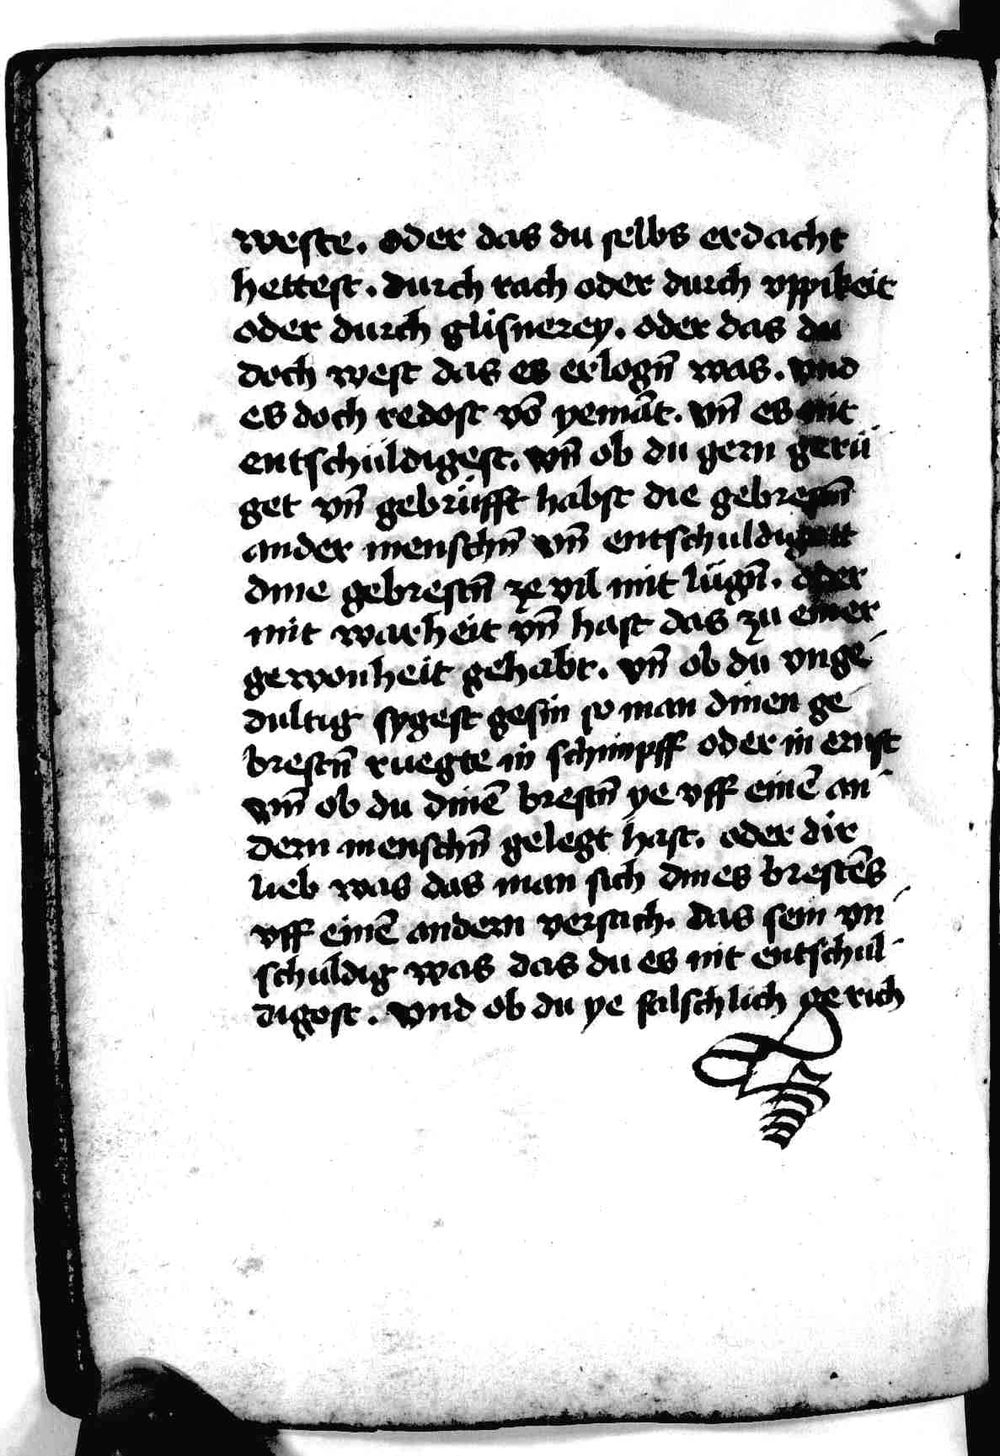 weste. oder das du selbs erdacht
hettest. durch rach oder durch vppikeit
oder durch glisnerey. oder das du
doch west das es erlogn̄ was. vnd
es doch redost vō yemāt. vn̄ es nit
entschüldigest. vn̄ ob du gern gerü
get vn̄ gebrüfft habst die gebrestn̄
ander menschn̄ vn̄ entschuldigott
dine gebrestn̄ ze vil mit lügn̄. oder
mit warheit vn̄ hast das zu einer
gewonheit gehabt. vn̄ ob du vnge-
dultig sygest gesin so man dinen ge-
brestn̄ ruegte in schimpff oder in ernst
vn̄ ob du dinē brestn̄ ye vff einē an-
dern menschn̄ gelegt hast. oder dir
lieb was das man sich dines brestēs
vff einē andern versach. das sein vn-
schuldig was das du es nit entschul-
digost. vnd ob du ye falschlich gerich